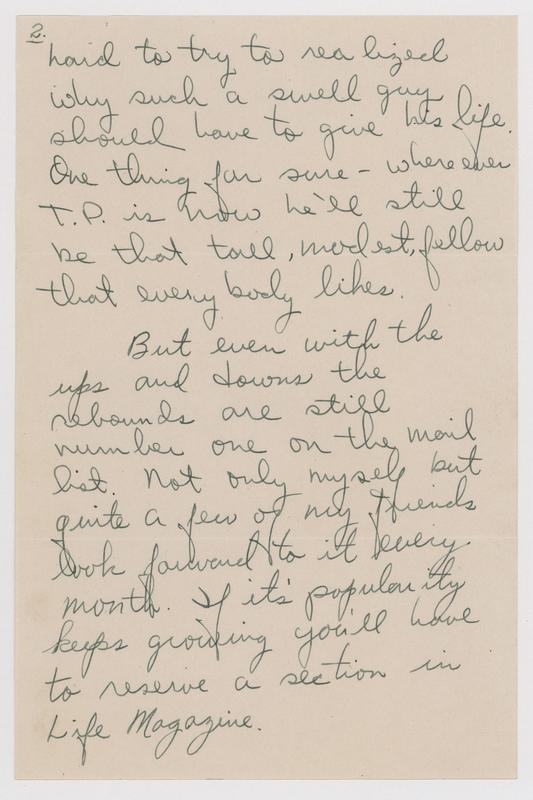 2.
hard to try to realized
why such a swell guy
should have to give his life.
One thing for sure - where ever
T.P. is now he'll still
be that tall, modest, fellow
that every body likes.
But even with the
ups and downs the
rebounds are still
number one on the mail
list. Not only myself but
quite a few of my friends
look forward to it every
month. If it's popularity
keeps growing you'll have
to reserve a section in
Life Magazine.